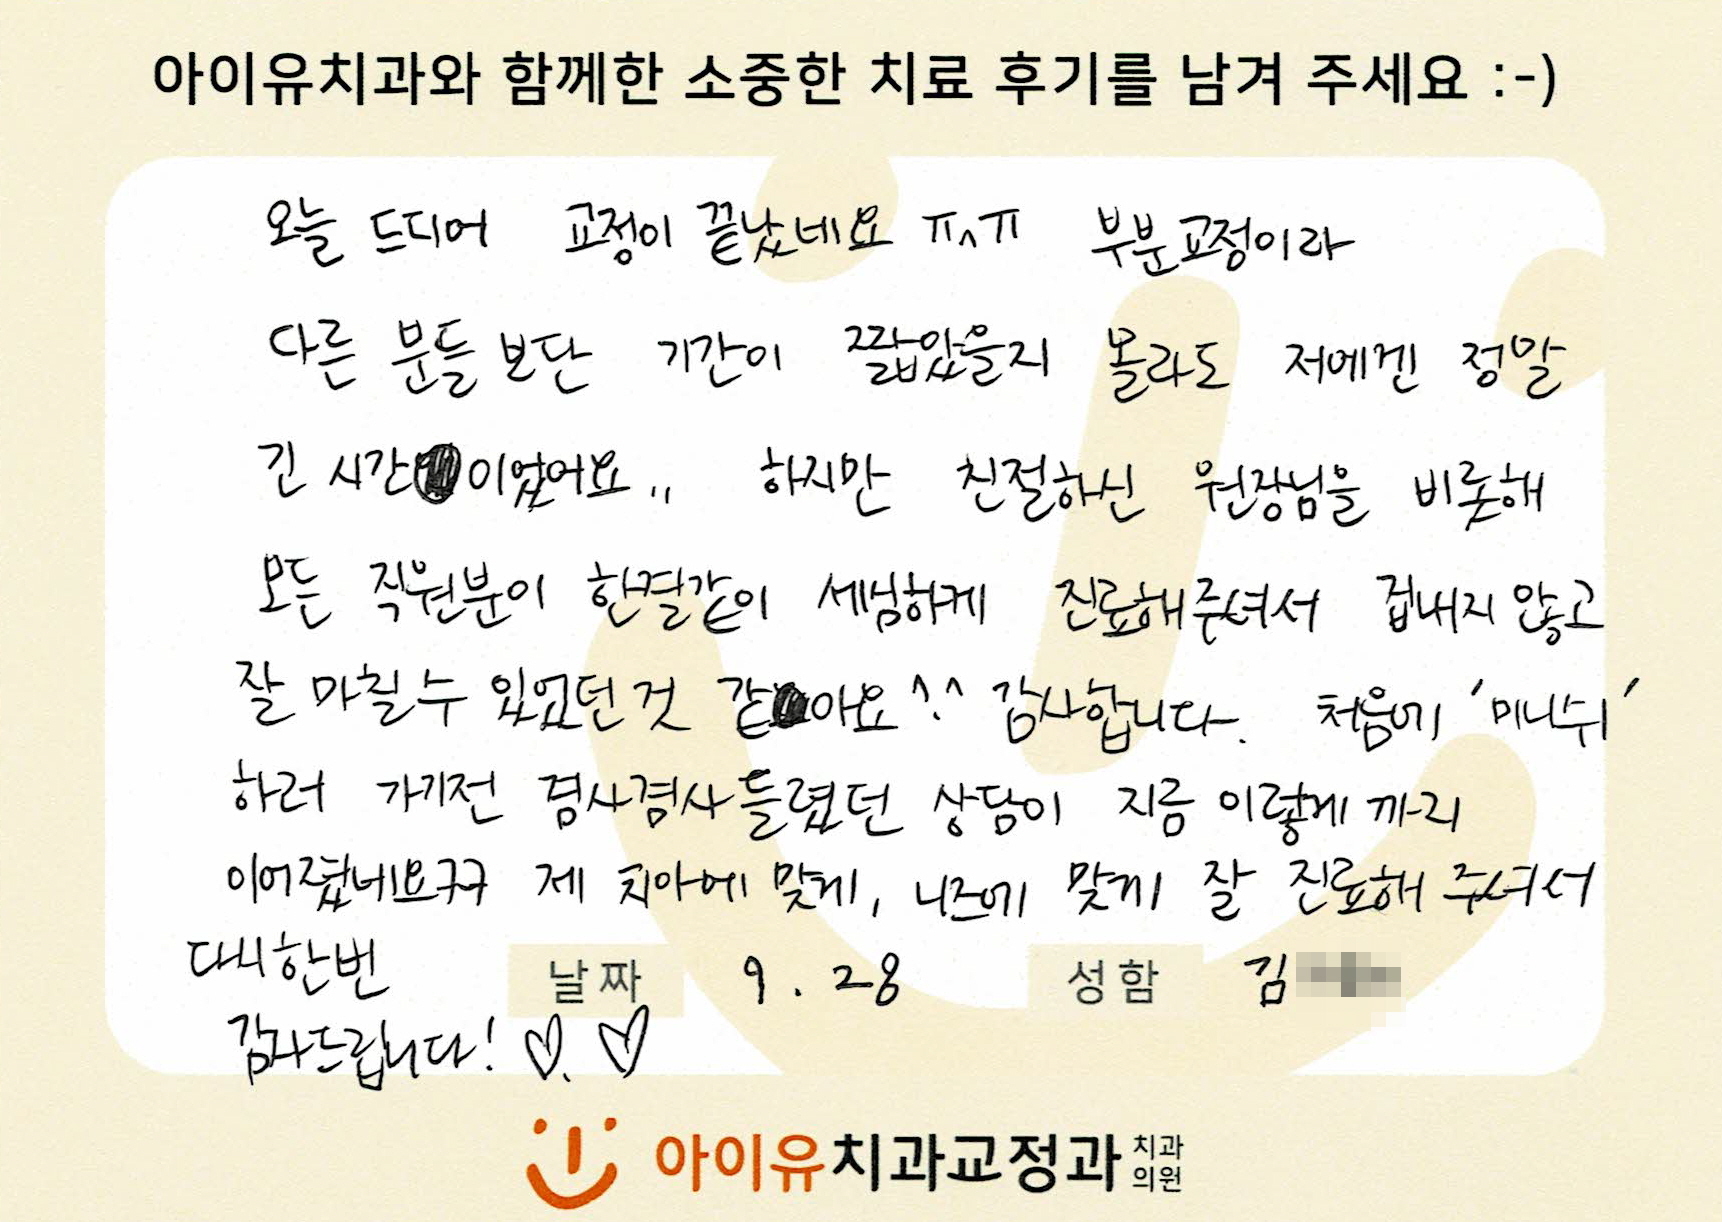 아이유치과와 함께한 소중한 치료 후기를 남겨 주세요 :-)
오늘 드디어 교정이 끝났네요 ㅠ^ㅠ 부분교정이라
다른 분들 보단 기간이 짧았을지 몰라도 저에겐 정말
긴 시간이었어요,, 하지만 친절하신 원장님을 비롯해
모든 직원분이 한결같이 세심하게 진료해주셔서 겁내지 않고
잘 마칠수 있었던 것 같아요^^ 감사합니다. 처음에 '미니쉬'
하러 가기전 겸사겸사 들렸던 상담이 지금 이렇게 까지
이어졌네요ㅋㅋ 제 치아에 맞게, 니즈에 맞게 잘 진료해 주셔서
다시한번
날짜 9. 28 성함 김
감사드립니다! ♡. ♡
아이유치과교정과 치과의원